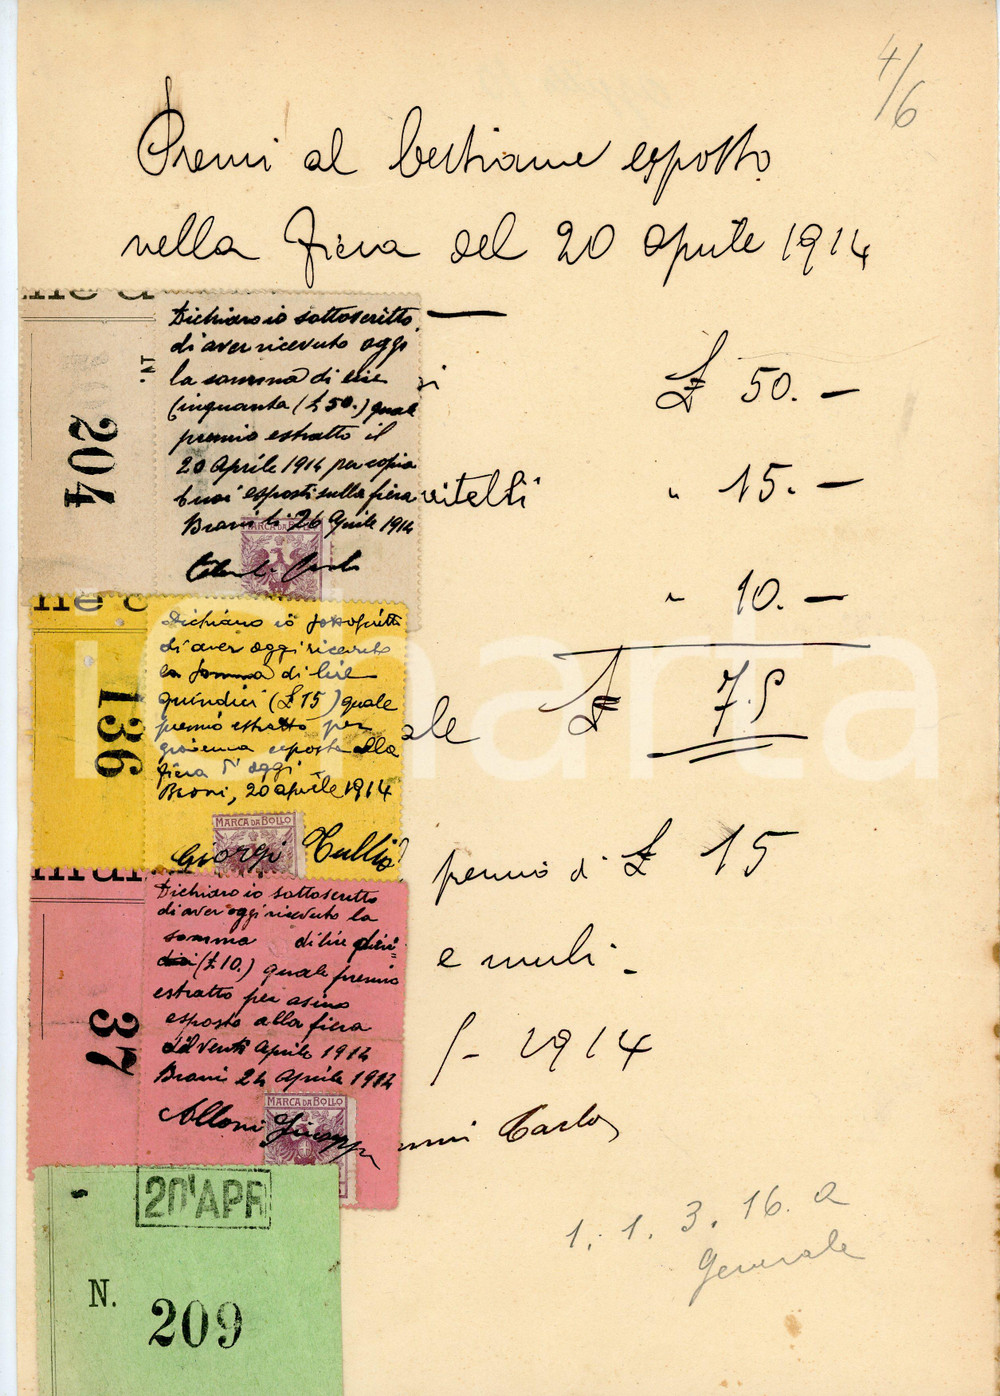 4/6
Premi al bestiame esposto
nella Fiera del 20 aprile 1914
£ 50. —
vitelli " 15. —
" 10. —
ale £ 75
premio di £ 15
e muli
1914
Carlo
1. 1. 3. 16. a
Generale
204
Dichiaro io sottoscritto
di aver ricevuto oggi
la somma di lire
cinquanta (£ 50.) quale
premio estratto il
20 Aprile 1914 per copia
buoi esposti sulla fiera
Broni li 26 Aprile 1914
MARCA DA BOLLO
136
Dichiaro io sottoscritto
di aver oggi ricevuto
la somma di lire
quindici (£ 15) quale
premio estratto per
giovenca esposta alla
fiera d'oggi
Broni, 20 aprile 1914
MARCA DA BOLLO
Giorgi Tullio
37
Dichiaro io sottoscritto
di aver oggi ricevuto la
somma di lire dieci
(£ 10.) quale premio
estratto per asino
esposto alla fiera
del venti Aprile 1914
Broni 24 Aprile 1914
MARCA DA BOLLO
Alloni Giuseppe
20 APR
N. 209